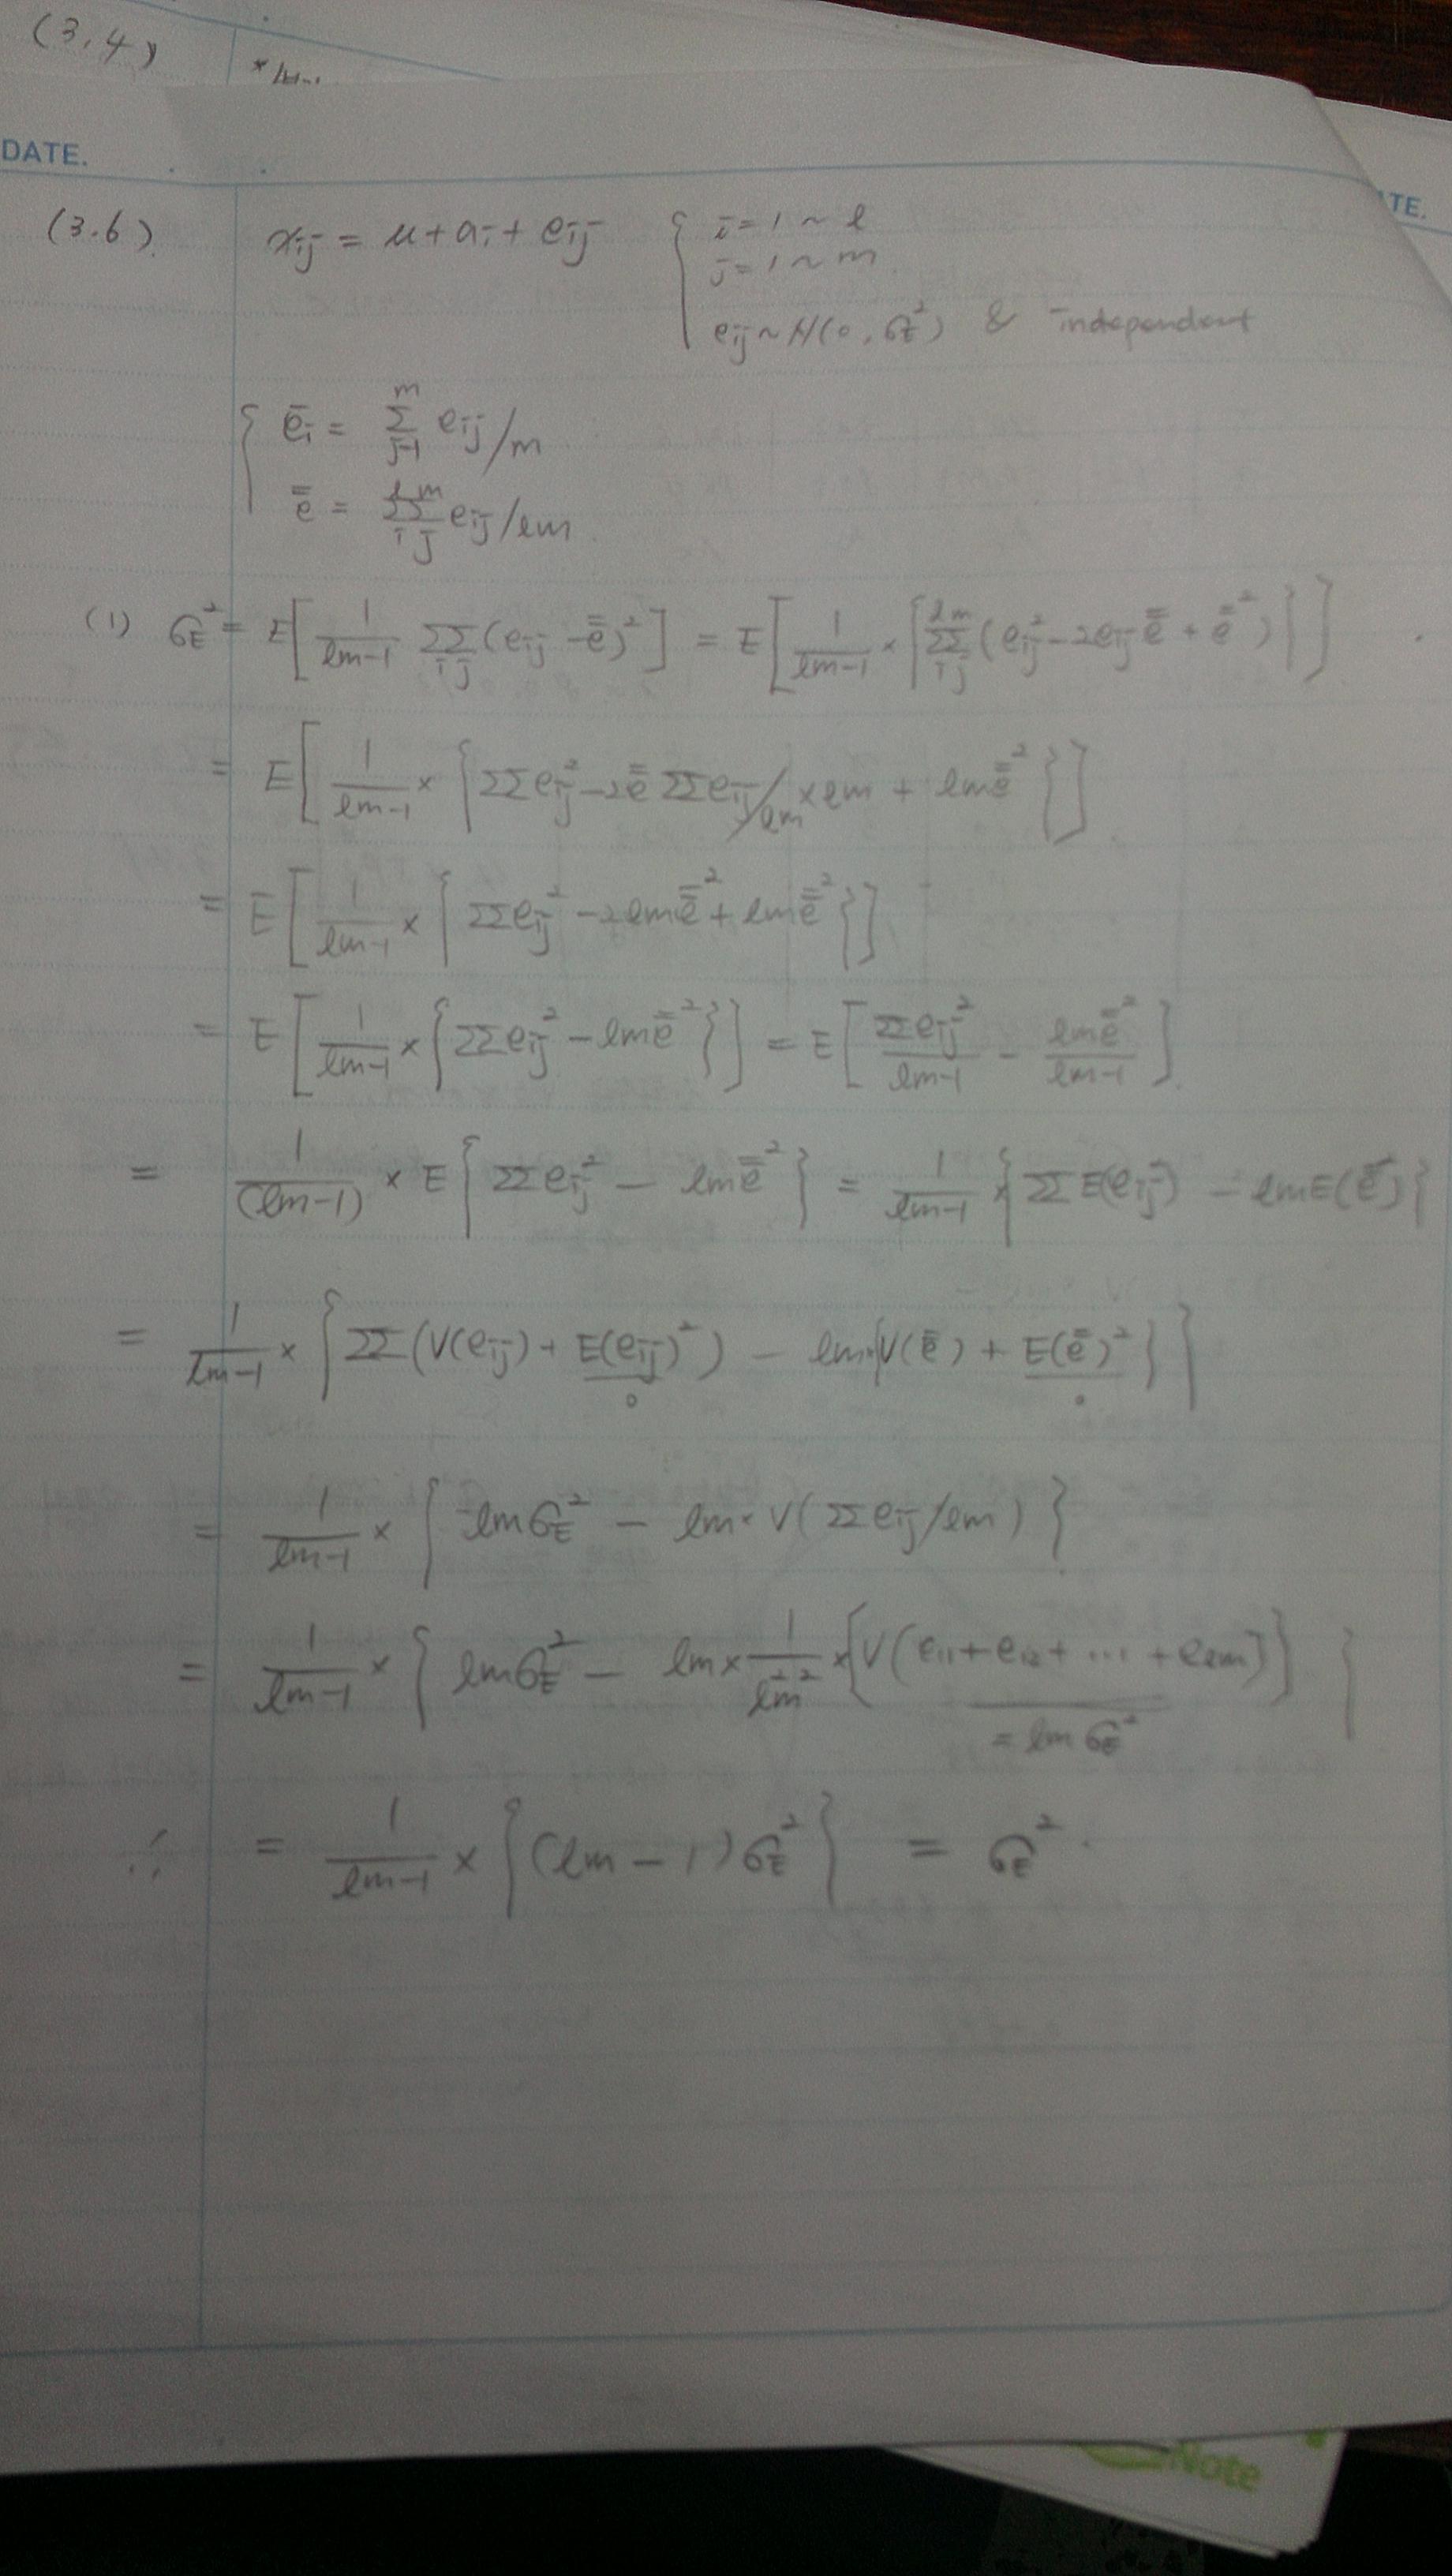 (3.4)
DATE.
TE.
(3.6). x_ij = μ + a_i + e_ij { i = 1 ~ l
j = 1 ~ m
e_ij ~ N(0, σ_E²) & independent
{ ē_i = Σ_{j=1}^{m} e_ij / m
e̿ = Σ_i^l Σ_j^m e_ij / lm.
(1) σ_E² = E[ 1/(lm-1) Σ_i Σ_j (e_ij - e̿)² ] = E[ 1/(lm-1) × { Σ_i^l Σ_j^m (e_ij² - 2e_ij e̿ + e̿²) } ]
= E[ 1/(lm-1) × { ΣΣe_ij² - 2e̿ ΣΣe_ij/lm × lm + lm e̿² } ]
= E[ 1/(lm-1) × { ΣΣe_ij² - 2lm e̿² + lm e̿² } ]
= E[ 1/(lm-1) × { ΣΣe_ij² - lm e̿² } ] = E[ ΣΣe_ij²/(lm-1) - lm e̿²/(lm-1) ].
= 1/(lm-1) × E{ ΣΣe_ij² - lm e̿² } = 1/(lm-1) × { ΣΣ E(e_ij²) - lm E(e̿²) }
= 1/(lm-1) × { ΣΣ (V(e_ij) + E(e_ij)²) - lm·{V(e̿) + E(e̿)²} }
0 0
= 1/(lm-1) × { lm σ_E² - lm · V(ΣΣe_ij/lm) }
= 1/(lm-1) × { lm σ_E² - lm × 1/(l²m²) × {V(e_11 + e_12 + ... + e_lm)} }
= lm σ_E²
∴ = 1/(lm-1) × { (lm - 1) σ_E² } = σ_E².
Note